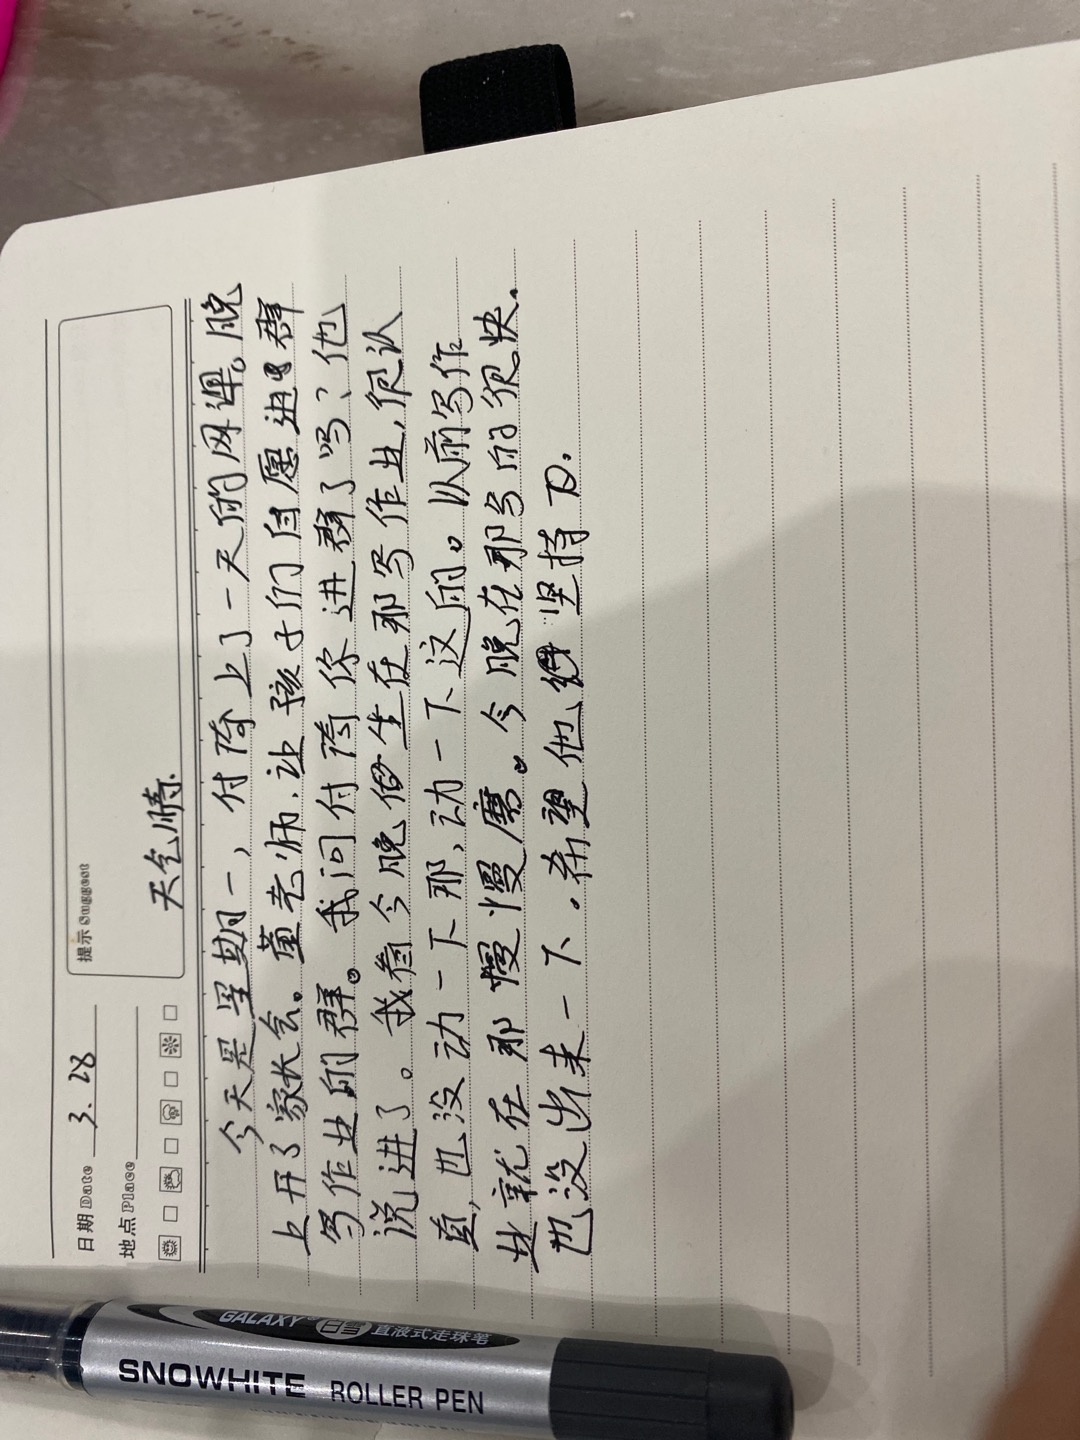 日期 Date 3.28
提示 Suggest
地点 Place
天气晴.
今天是星期一,付隋上了一天的网课。晚
上开了家长会。董老师.让孩子们自愿进群
写作业的群。我问付隋你进群了吗?他
说进了。我看今晚坐在那写作业,很认
真,也没动一下那,动一下这的。以前写作
业就在那慢慢磨。今晚在那写的很快.
也没出来一下.希望他坚持

GALAXY 白雪 直液式走珠笔
SNOWHITE ROLLER PEN